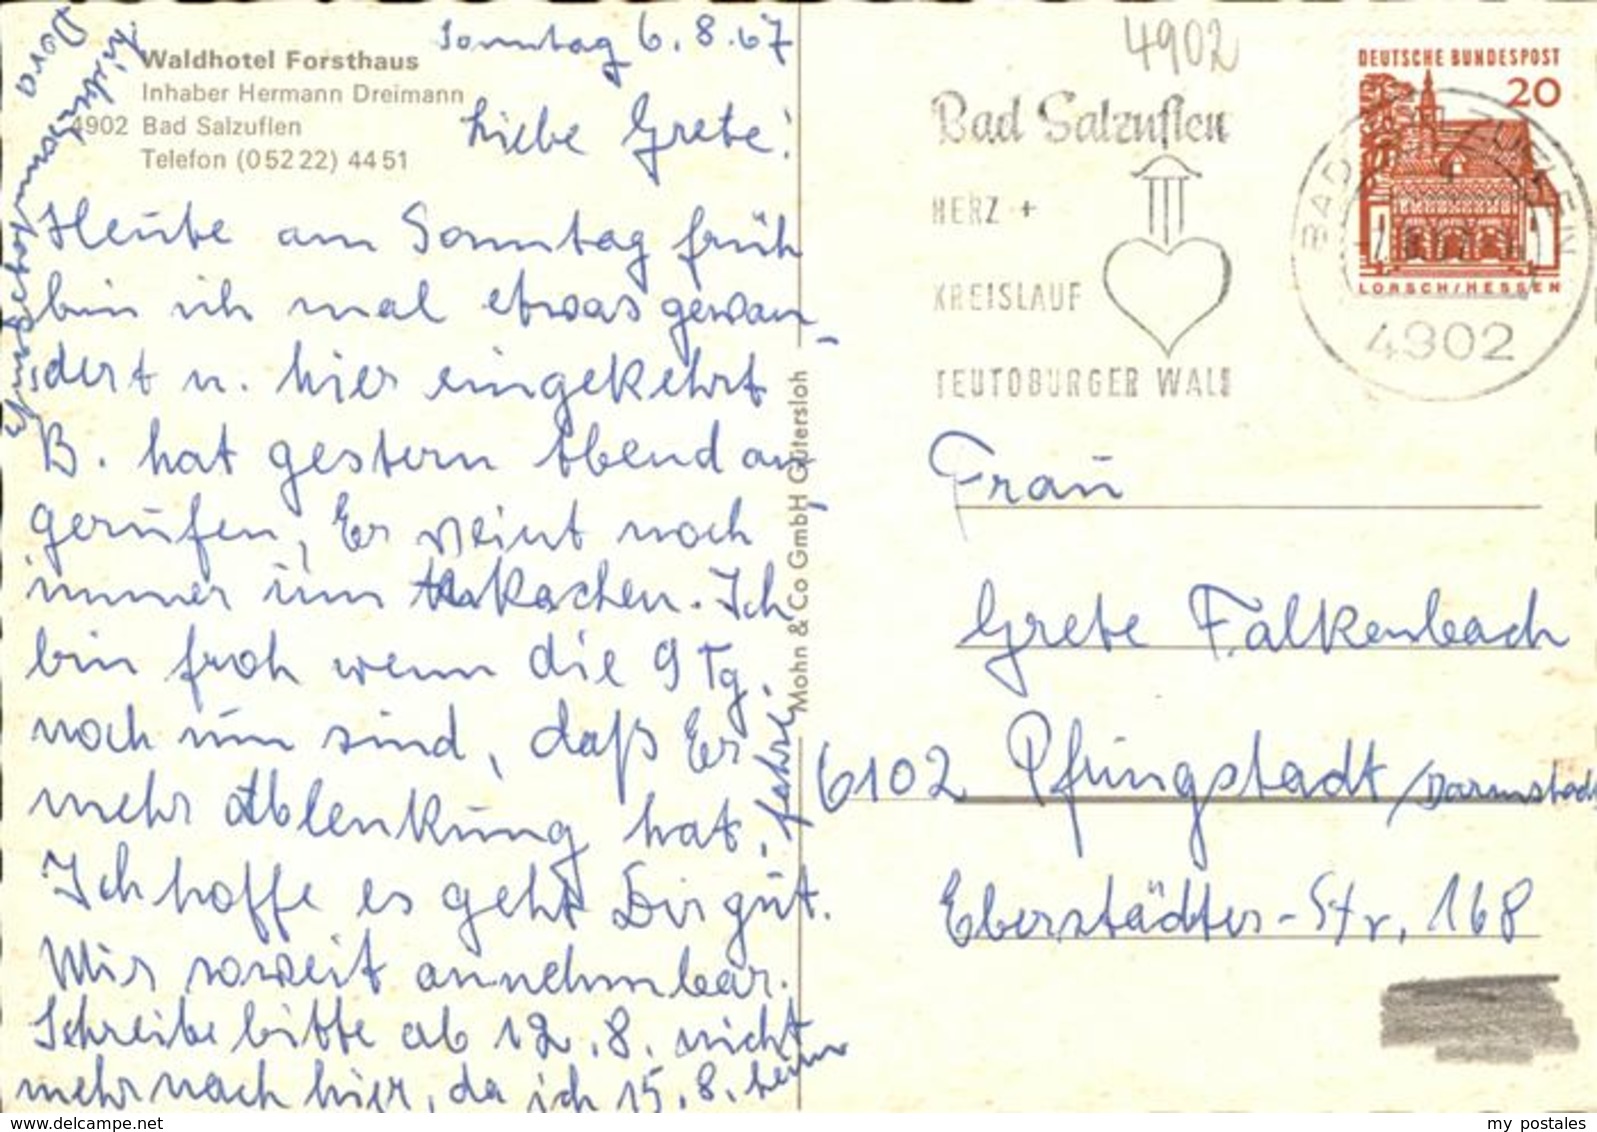 Waldhotel Forsthaus
Inhaber Hermann Dreimann
4902 Bad Salzuflen
Telefon (05222) 4451
Sonntag 6.8.67
Liebe Grete!
Heute am Sonntag früh
bin ich mal etwas gewan-
dert u. hier eingekehrt
B. hat gestern Abend an-
gerufen, Er weint noch
immer um Kachen. Ich
bin froh wenn die 9 Tg.
noch um sind, daß Er
mehr Ablenkung hat.
Ich hoffe es geht Dir gut.
Mir soweit annehmbar.
Schreibe bitte ab 12.8. nicht
mehr nach hier, da ich 15.8. heim
fahre.
Dora
Mohn & Co GmbH Gütersloh
4902
Bad Salzuflen
HERZ +
KREISLAUF
TEUTOBURGER WALD
DEUTSCHE BUNDESPOST
20
LORSCH/HESSEN
BAD SALZUFLEN
4902
Frau
Grete Falkenbach
6102 Pfungstadt /Darmstadt
Eberstädter-Str. 168
www.delcampe.net
my postales